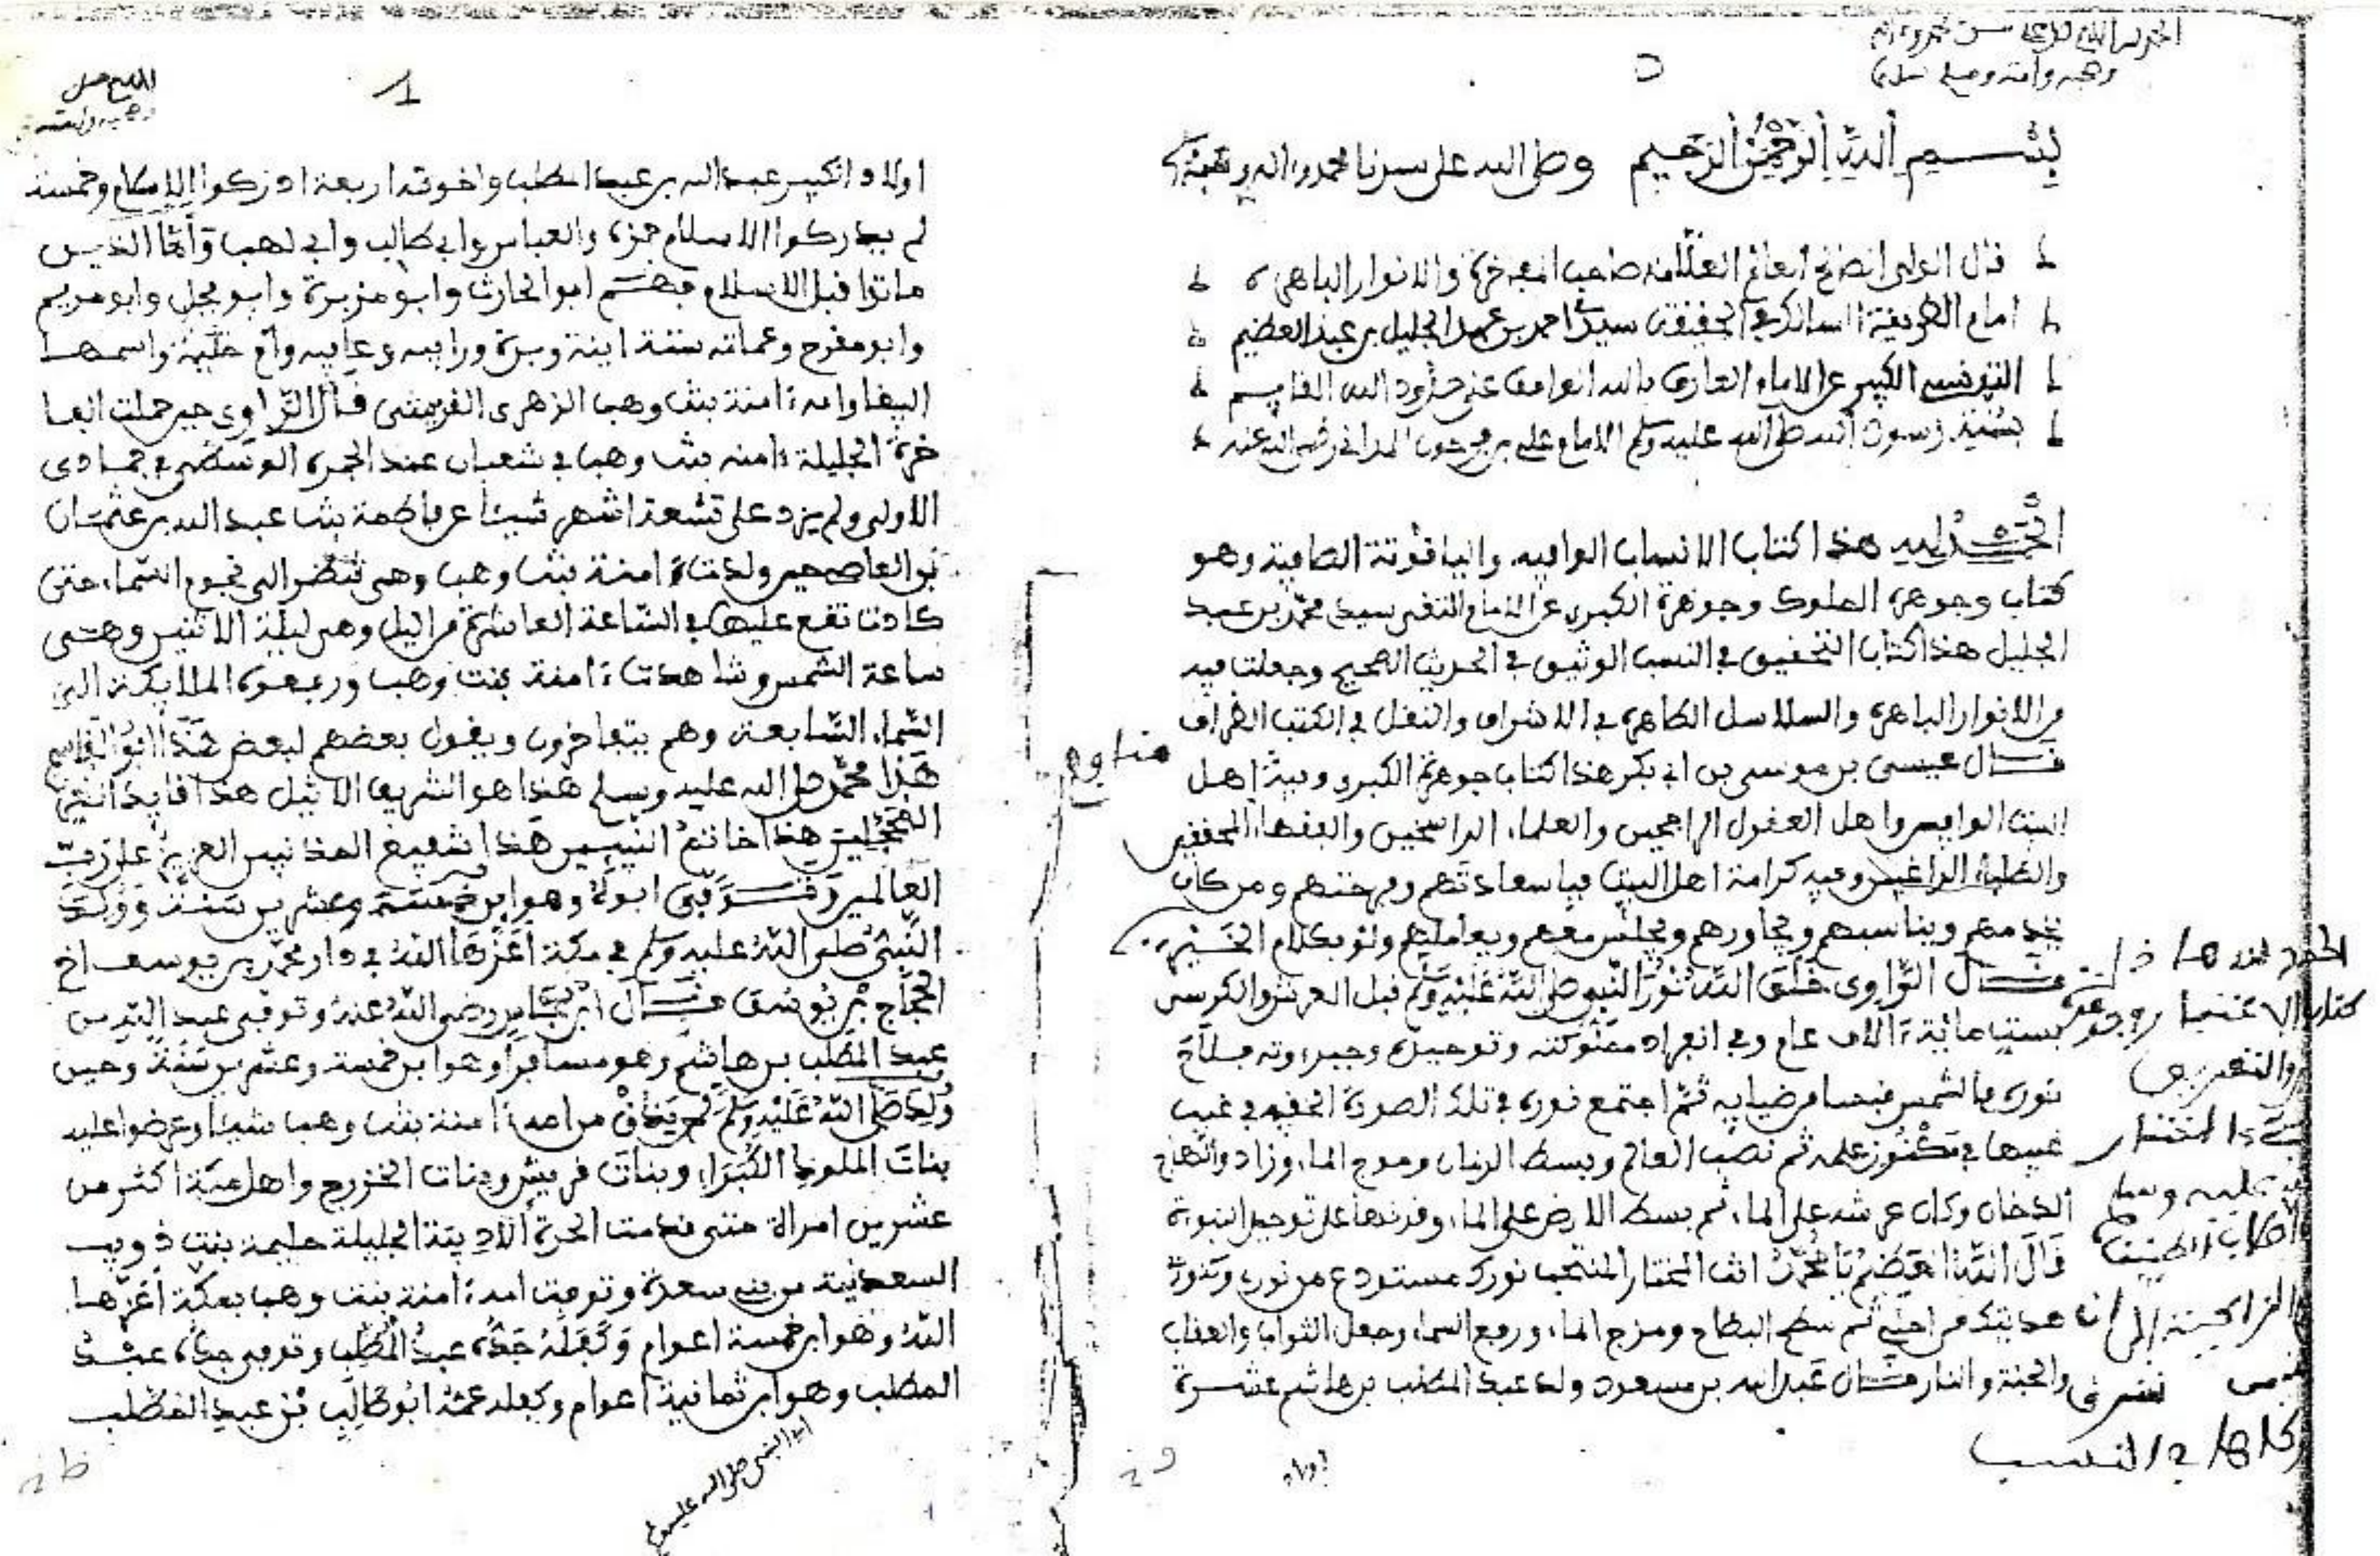 بسم الله الرحمن الرحيم وصلى الله على سيدنا محمد واله وصحبه
قال الولي الصالح العالم العلامة صاحب المفخرة والانوار الباهرة
امام الطريقة السالك في الحقيقة سيدي احمد بن عبد الجليل بن عبد العظيم
التونسي الكبير عن الامام العارف بالله الواقف على حدود الله القايم
بسنة رسول الله صلى الله عليه وسلم الامام علي بن فرحون المداني رضي الله عنه
الحمد لله هذا كتاب الانساب الوافيه والياقوتة الصافية وهو
كتاب وجوهرة الملوك وجوهرة الكبرى عن الامام التقى سيدي محمد بن عبد
الجليل هذا كتاب التحقيق في النسب الوثيق في الحديث الصحيح وجعلت فيه
من الانوار الباهرة والسلاسل الطاهرة في الاشراف والنقل في الكتب الظراف
قال عيسى بن موسى بن ابي بكر هذا كتاب جوهرة الكبرى وبيه اهل
البيت الوافيين واهل العقول الراجحين والعلماء الراسخين والفقهاء المحققين
والطلبة الراغبين وفيه كرامة اهل البيت فيا سعادتهم وبهجتهم ومن كان
يخدمهم ويناسبهم ويجاورهم ويجلس معهم ويعاملهم ولو بكلام الخير
قال الراوي خلق الله نور النبي صلى الله عليه وسلم قبل العرش والكرسي
بست ماية الاف عام وفي انفراد ملكوته وتوحيده وجبروته
نوره فالشمس قبسا من ضيايه ثم اجتمع نوره في تلك الصورة الخفيه في غيب
غيبها في مكنوز علمه ثم نصب العالم وبسط الزمان وموج الماء وزاد وانهاج
الدخان وكان عرشه على الماء ثم بسط الارض على الماء وقدرتها على توحيد النبوة
قال الله العظيم يا محمد انت المختار المنتجب نورك مستودع من نوري وكنوز
هدايتك من اجلي ثم سطح البطاح ومزج الماء ورفع السماء وجعل الثواب والعذاب
والجنة والنار قال عبد الله بن مسعود ولد عبد المطلب بن هاشم عشرة
اولاد
1
اولاد الكبير عبد الله بن عبد المطلب واخوته اربعة ادركوا الاسلام وخمسة
لم يدركوا الاسلام حمزة والعباس وابي طالب وابي لهب واما الذين
ماتوا قبل الاسلام فهم ابو الحارث وابو مزيرة وابو محجل وابو مريم
وابو مفرح وعماته ستة ابنة وبرة ورابيه وعابيه وام حليمة واسمها
البيضا وامه ءامنة بنت وهب الزهري القريشي قال الراوي حين حملت الفا
خرة الجليلة ءامنه بنت وهب في شعبان عند الجمرة الوسطى في جمادى
الاولى ولم يزد على تسعة اشهر شيئا عن فاطمة بنت عبد الله بن عثمان
بن العاص حين ولدت ءامنة بنت وهب وهي تنظر الى نجوم السماء حتى
كادت تقع عليها في الساعة العاشرة من اليل وهي ليلة الاثنين وهي
ساعة الشمس وشاهدت ءامنة بنت وهب ورفعوه الملايكة الى
السماء السابعة وهم يتفاخرون ويقول بعضهم لبعض هذا ابو القاسم
هذا محمد صلى الله عليه وسلم هذا هو الشريف الاثيل هذا قايد الغر
المحجلين هذا خاتم النبيين هذا شفيع المذنبين العزيز على رب
العالمين وتوفى ابوه وهو ابن خمسة وعشرين سنة وولد
النبي صلى الله عليه وسلم في مكة اعزها الله في دار محمد بن يوسف اخ
الحجاج بن يوسف قال ابن عباس رضي الله عنه وتوفي عبد الله بن
عبد المطلب بن هاشم وهو مسافرا وهو ابن خمسة وعشرين سنة وحين
ولد صلى الله عليه وسلم لم يذق من امه ءامنة بنت وهب شيئا وعرضوا عليه
بنات الملوك الكبراء وبنات قريش وبنات الخزرج واهل مكة اكثر من
عشرين امراة حتى قدمت الحرة الاديبة الجليلة حليمة بنت ذويب
السعدية من بني سعدة وتوفت امه ءامنة بنت وهب بمكة اعزها
الله وهو ابن خمسة اعوام وكفله جده عبد المطلب وتوفي جده عبد
المطلب وهو ابن ثمانية اعوام وكفله عمه ابو طالب بن عبد المطلب